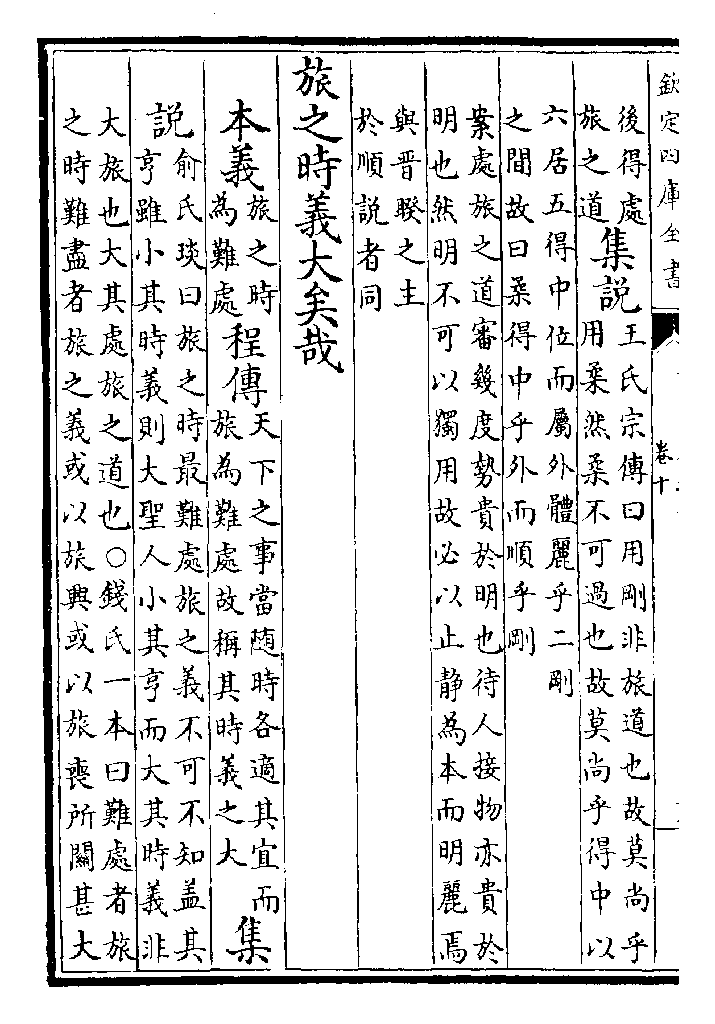 欽定四庫全書
卷十
後得處
旅之道
集說
王氏宗傳曰用剛非旅道也故莫尚乎
用柔然柔不可過也故莫尚乎得中以
六居五得中位而屬外體麗乎二剛
之間故曰柔得中乎外而順乎剛
案處旅之道審幾度勢貴於明也待人接物亦貴於
明也然明不可以獨用故必以止靜為本而明麗焉
與晉睽之主
於順說者同
旅之時義大矣哉
本義
旅之時
為難處
程傳
天下之事當随時各適其宜而
旅為難處故稱其時義之大
集
説
俞氏琰曰旅之時最難處旅之義不可不知盖其
亨雖小其時義則大聖人小其亨而大其時義非
大旅也大其處旅之道也○錢氏一本曰難處者旅
之時難盡者旅之義或以旅興或以旅喪所關甚大